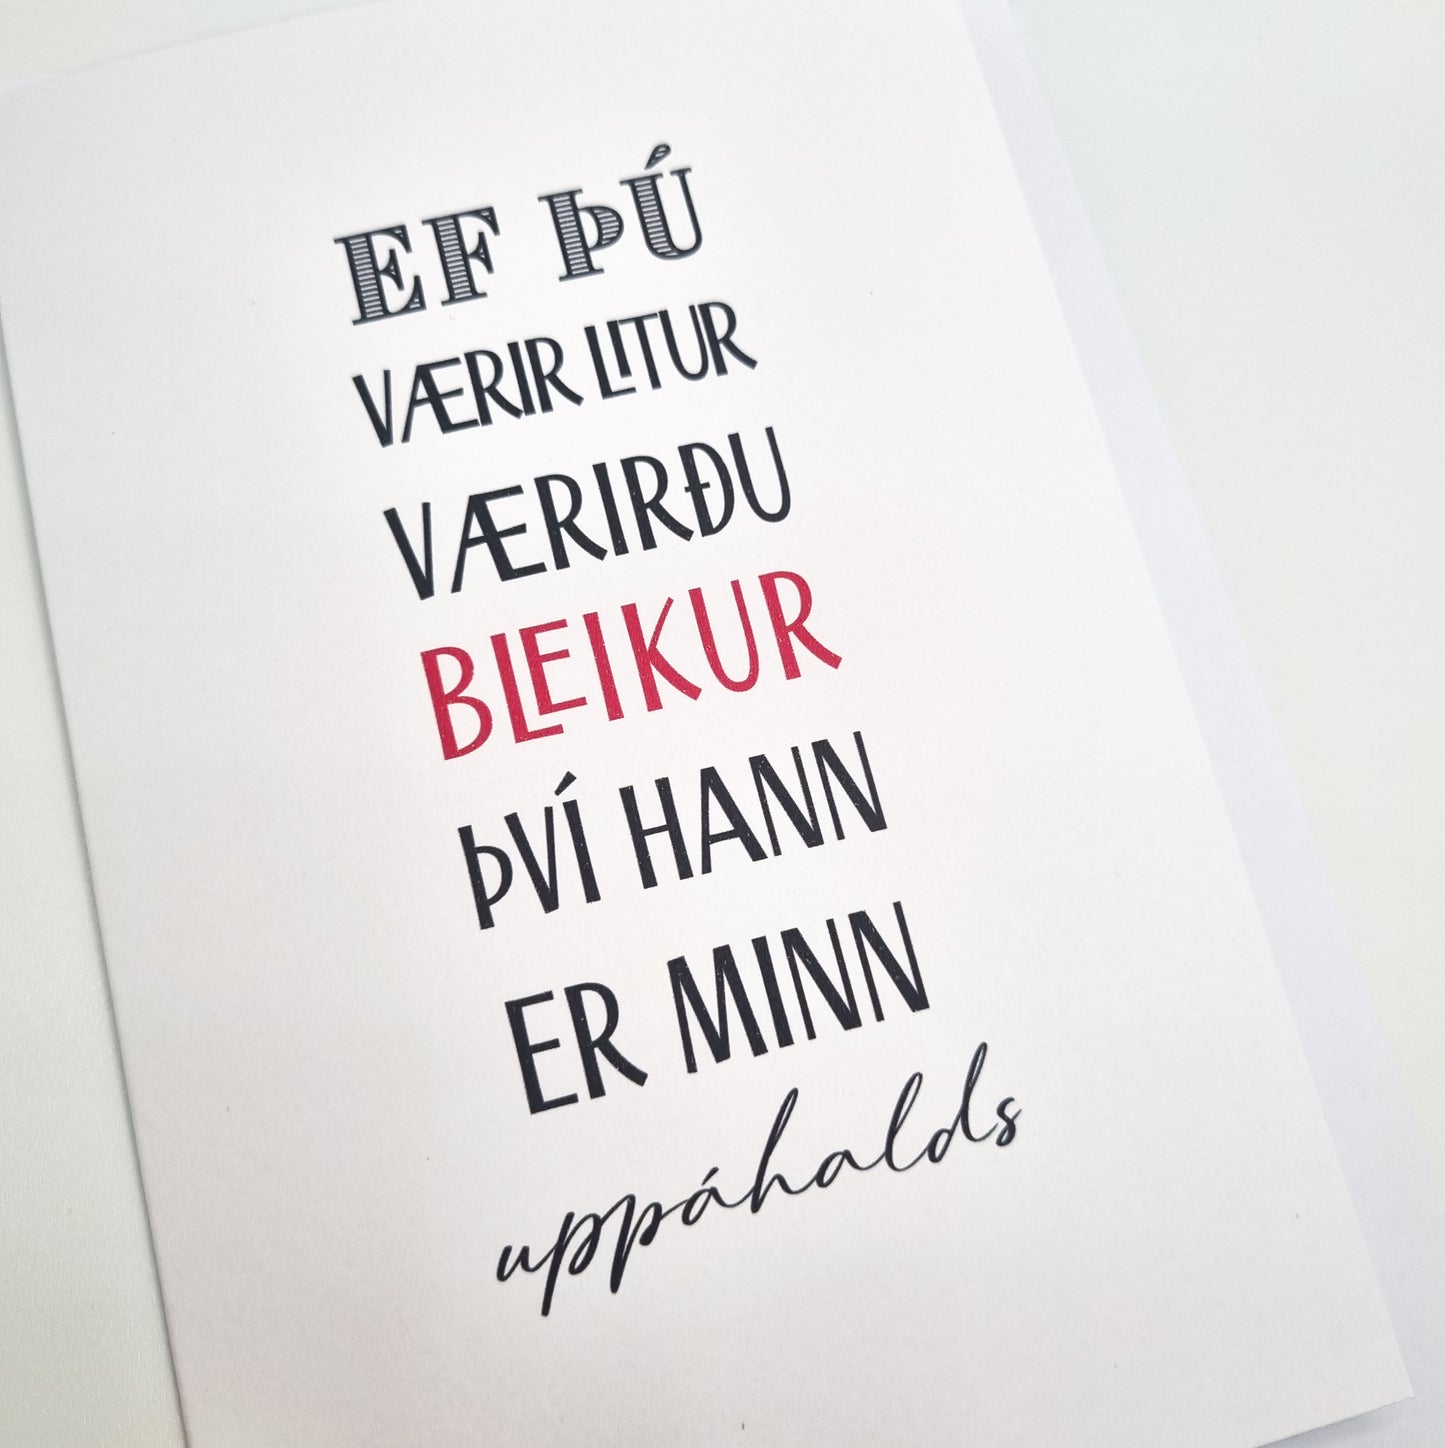 EF ÞÚ
VÆRIR LITUR
VÆRIRÐU
BLEIKUR
ÞVÍ HANN
ER MINN
uppáhalds